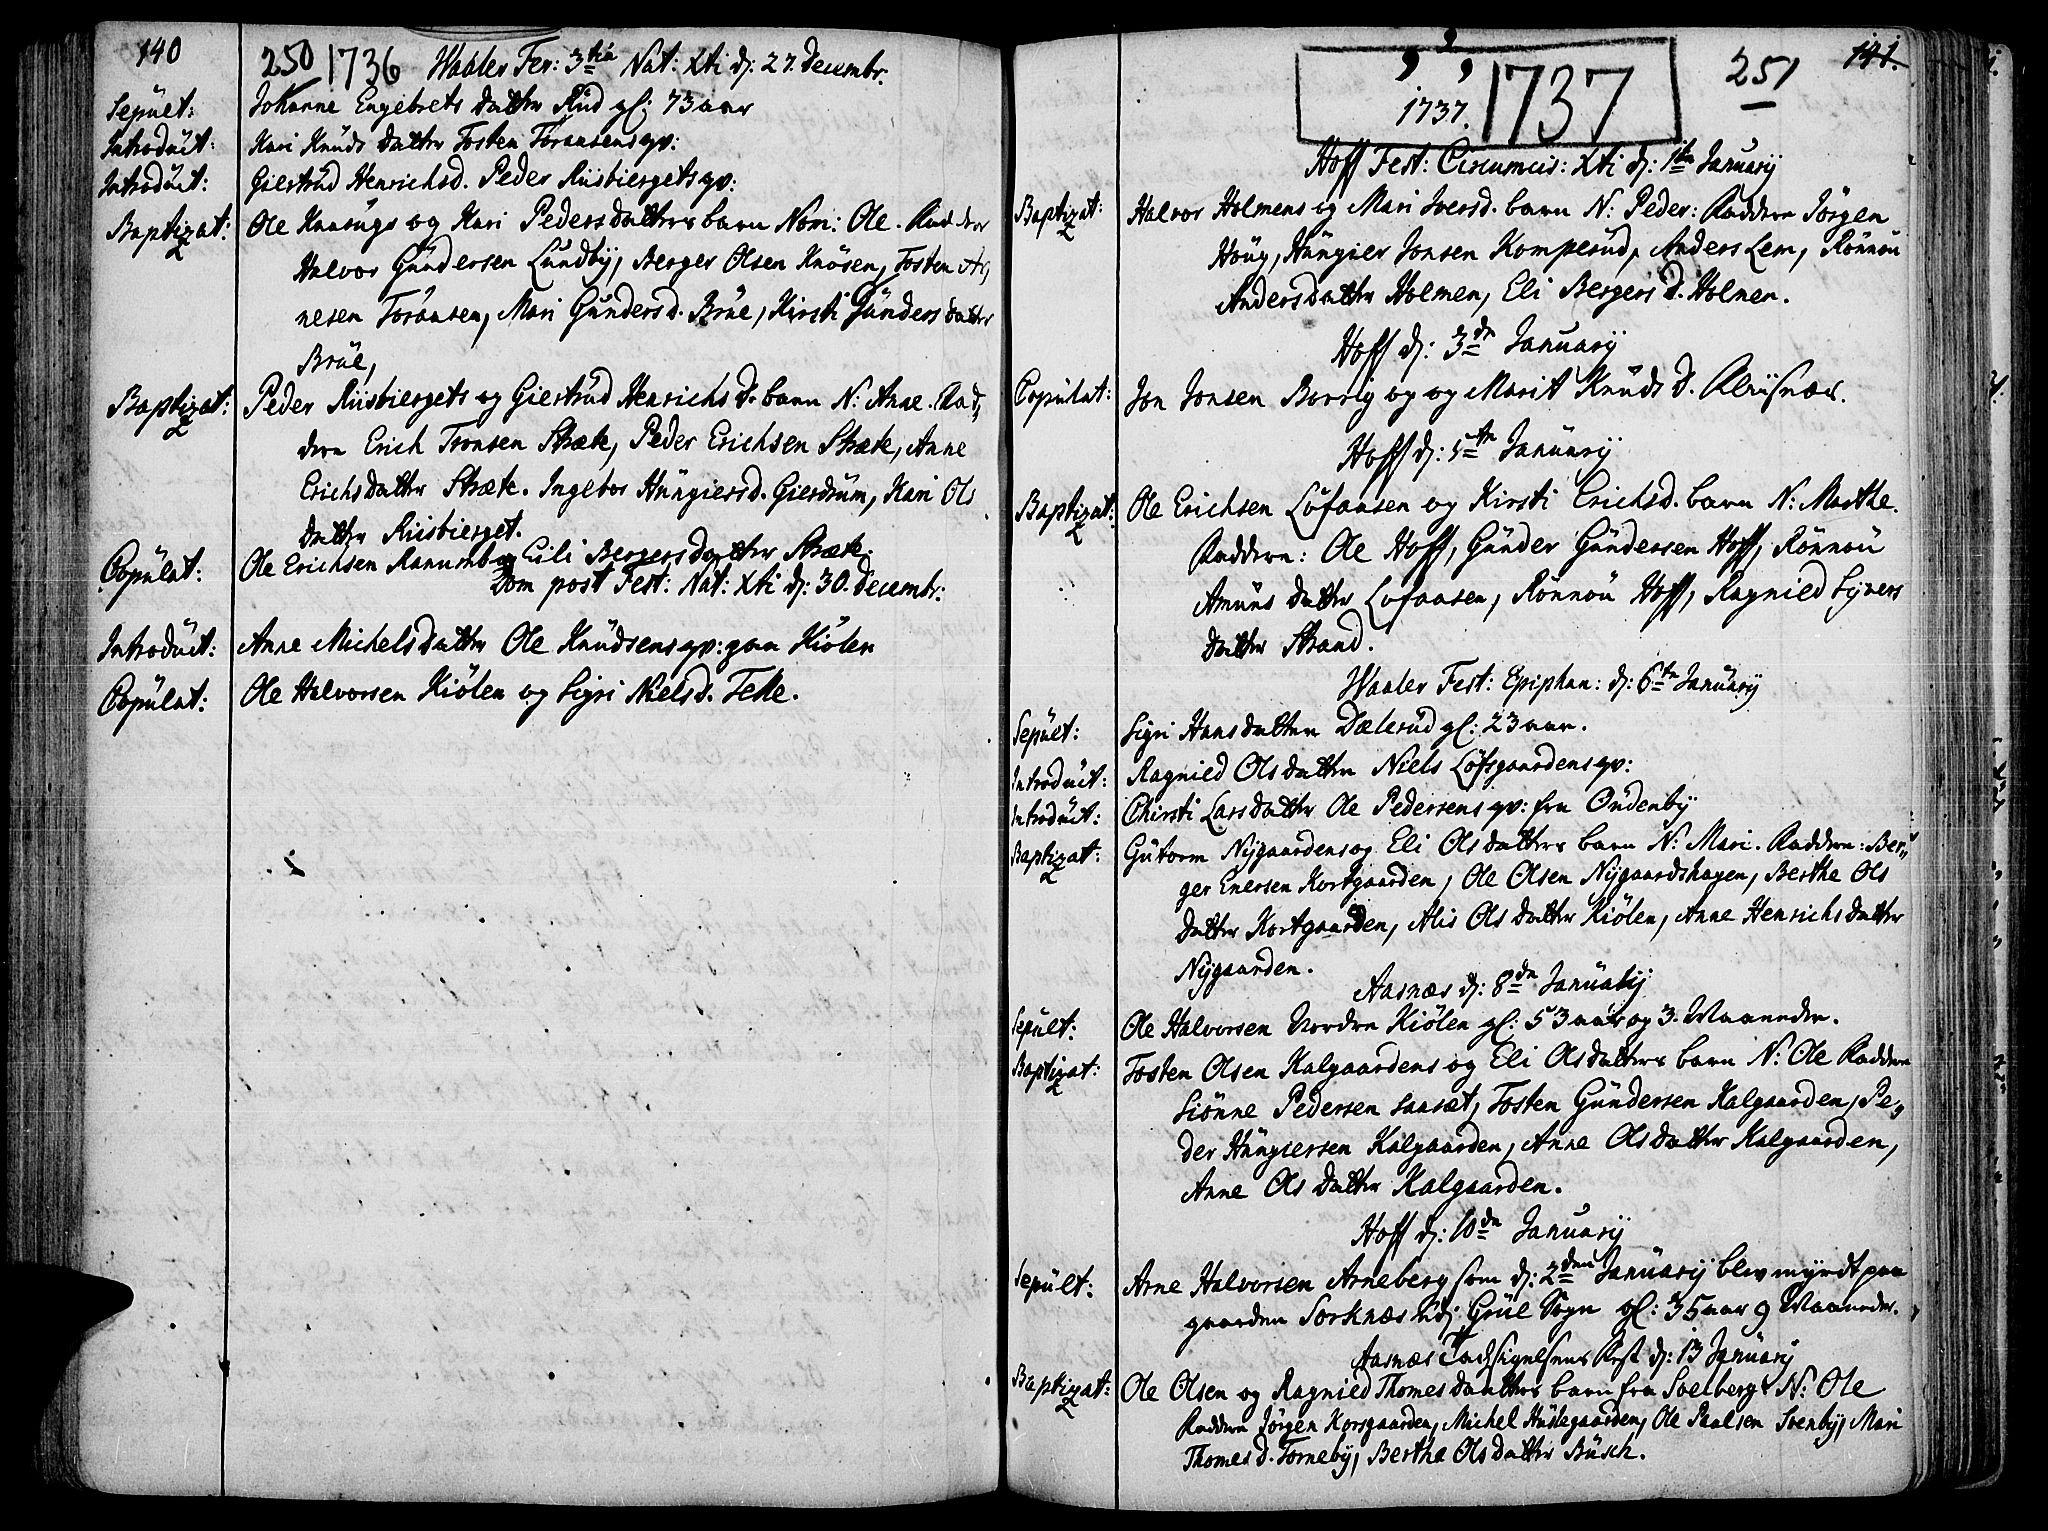 140
250 1736 Waaler Fer: 3tia Nat: Xti d: 27. Decembr.
Sepult: Johanne Engebrets datter Rud gl: 73 aar
Introduct: Kari Knuds datter Tosten Toraasens qv:
Introduct: Giertrud Henrichsd. Peder Riisbiergets qv:
Baptizat: Ole Kaasugs og Kari Pedersdatters barn Nom: Ole.
Halvor Gundersen Lundby, Berger Olsen Knosen, Tosten Ar,
nesen Toraasen, Mari Gundersd. Brue, Kirsti Gunders datter
Brue,
Baptizat: Peder Riisbiergets og Giertrud Henrichs D. barn N: Anne. Fad,
dere Erich Tronsen Stræte, Peder Erichsen Stræte, Anne
Erichsdatter Stræte. Ingebor Hungiersd. Gierdrum, Kari Ols
datter Riisbierget.
Copulat: Ole Erichsen Ranum og Eili Bergersdatter Stræte.
Dom post Fest: Nat: Xti d: 30. Decembr:
Introduct: Anne Michelsdatter Ole Knudsens qv: paa Kiølen
Copulat: Ole Halvorsen Kiølen og Sigri Nielsd. Telle.
1737. 1737 251 141.
Hoff Fest: Circumcis: Xti d: 1te January
Baptizat: Halvor Holmens og Mari Iversd. barn N: Peder: Faddere Jörgen
Houg, Hungier Jonsen Komperud, Anders Lem, Rönnou
Andersdatter Holmen, Eli Bergers D. Holmen.
Hoff d: 3de January
Copulat: Jon Jonsen Borrig og og Marit Knuds D.
Hoff d: 5te January
Baptizat: Ole Erichsen Lofaasen og Kirsti Erichsd. barn N: Marthe.
Faddere: Ole Hoff, Gunder Gundersen Hoff, Rönnou
Amuns datter Lofaasen, Rönnou Hoff, Ragnied Syvers
datter Strand.
Waaler Fest: Epiphan: d: 6te January
Sepult: Sigri Hansdatter Dælerud gl: 23 aar.
Introduct: Ragnied Olsdatter Niels Löfsgaardens qv:
Introduct: Chirsti Larsdatter Ole Pedersens qv: fra Oudenby
Baptizat: Gutorm Nygaardens og Eli Olsdatters barn N: Mari. Faddere: Ber,,
ger Enersen Kortgaarden, Ole Olsen Nygaardshagen, Berthe Ols
datter Kortgaarden, Alis Olsdatter Kiölen, Anne Henrichsdatter
Nygaarden.
Aasnæs d: 8de January
Sepult: Ole Halvorsen Nordre Kiölen gl: 53 aar og 3. Maaneder.
Baptizat: Tosten Olsen Kalgaardens og Eli Olsdatters barn N: Ole Faddere
Siönne Pedersen Saaset, Tosten Gundersen Kalgaarden, Pe,,
der Hungiersen Kalgaarden, Anne Olsdatter Kalgaarden,
Anne Olsdatter Kalgaarden.
Hoff d: 10de January
Sepult: Arne Halvorsen Arneberg som d: 2den January blev myrdt paa
gaarden Sorknæs udj Grue Sogn gl: 35 aar 9 Maaneder.
Aasnæs Tacksigelsens Fest d: 13 January
Baptizat: Ole Olsen og Ragnied Thomesdatters barn fra Solberg N: Ole
Faddere Jörgen Korsgaarden, Michel Huslegaarden, Ole Paalsen Svenby, Mari
Thomes D. Torneby, Berthe Olsdatter Busch.